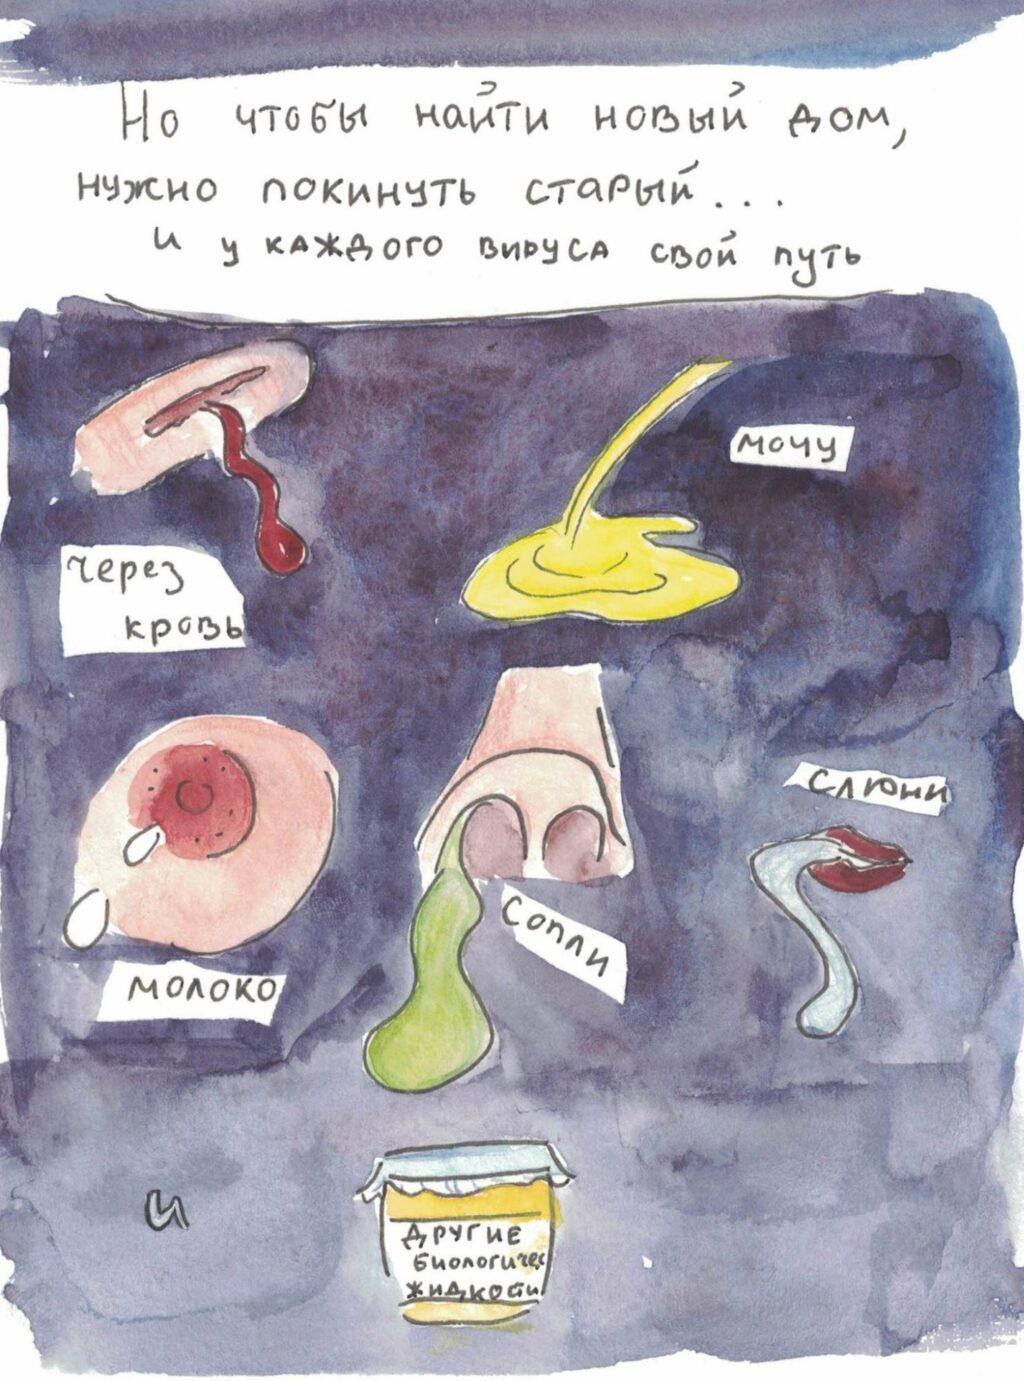 Но чтобы найти новый дом,
нужно покинуть старый...
и у каждого вируса свой путь
через
кровь
мочу
молоко
сопли
слюни
и
другие
биологичес
жидкости